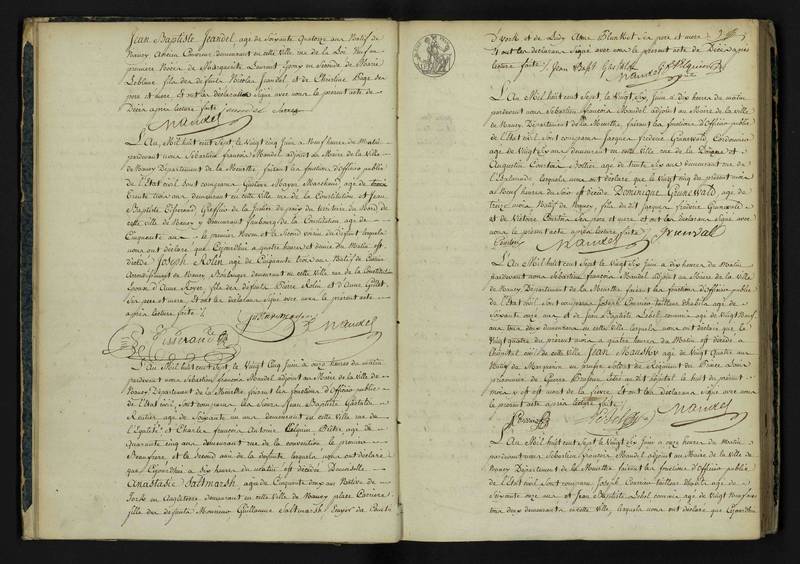 Jean Baptiste Jeandel, age de Soixante Quatorze ans Natif de
Nancy ancien Couvreur demeurant en cette Ville rue de la
premiere Noces de Marguerite Laurent Gony en Seconde de Marie
Leblanc fils des defunts Nicolas Jeandel et de Christine
Ses pere et mere. Et ont les declarans Signé avec nous le present acte de
Décès après lecture faite
Mandel
L'An Mil huit cent Sept le Vingt cinq Juin a Neuf heures du Matin
pardevant nous Sebastien françois Mandel adjoint au Maire de la Ville
de Nancy Département de la Meurthe, faisant les fonctions d'Officier public
de l'Etat civil Sont comparus Gustave Mayer Marchand, age de trente
trois ans, demeurant en cette Ville rue de la Constitution et Jean
Baptiste Esperard Greffier de la Justice de paix du territoire du Nord de
cette Ville de Nancy y demeurant faubourg de la Constitution age de
Cinquante ans le premier Neveu et le Second voisin du defunt lesquels
nous ont déclaré que Cejourdhui a quatre heures et demie du Matin est
décédé Joseph Rolin agé de Cinquante trois ans Natif de
Arrondissement de Nancy Boulanger demeurant en cette Ville rue de la Constitution
Epoux d'Anne Mayer, fils des défunts Pierre Rolin et d'Anne
Ses pere et mere, Et ont les declarans Signé avec nous le present acte
après lecture faite
Mandel
L'An Mil huit cent Sept le Vingt Cinq Juin a onze heures du matin
pardevant nous Sebastien françois Mandel adjoint au Maire de la Ville de
Nancy Département de la Meurthe faisant les fonctions d'Officier public
de l'Etat civil, Sont comparus les Sieurs Jean Baptiste
Rentier age de Soixante un ans demeurant en cette Ville rue de
l'Egalité et Charles françois Antoine Prêtre agé de
Quarante cinq ans demeurant rue de la convention le premier
Beaufrere et le Second ami de la défunte lesquels nous ont déclaré
que Cejourdhui a dix heures du matin est décédée Demoiselle
Anastasie Saltmarsh agée de Cinquante deux ans Native de
York en Angleterre demeurant en cette Ville de Nancy place Carriere
fille des défunts Monsieur Guillaume Saltmarsh Ecuyer du Comté
d'York et de Lady Anne Ses pere et mere
Et ont les declarans Signé avec nous le present acte de Décès après
lecture faite
Mandel
L'An Mil huit cent Sept, le Vingt Six Juin a dix heures du matin
pardevant nous Sebastien françois Mandel adjoint au Maire de la Ville
de Nancy, Département de la Meurthe, faisant les fonctions d'Officier public
de l'Etat civil Sont comparus Jacques frédéric Grunewald, Cordonnier
age de Vingt six ans demeurant en cette Ville rue de la et
Augustin Couston Bottier age de trente six ans demeurant rue de
lesquels nous ont déclaré que le Vingt cinq du présent mois
a Neuf heures du Soir est décédé Dominique Grunewald, age de
treize mois Natif de Nancy, fils du dit Jacques frédéric Grunewald
et de Victoire Couston Ses pere et mere, et ont les declarans Signé avec
nous le présent acte après lecture faite
Couston Mandel
L'An Mil huit cent Sept le Vingt Six Juin a dix heures du Matin
pardevant nous Sebastien françois Mandel adjoint au Maire de la Ville
de Nancy, Département de la Meurthe faisant les fonctions d'Officier public
de l'Etat civil Sont comparus Joseph tailleur d'habits agé de
Soixante onze ans, et de Jean Baptiste Lebel commis agé de Vingt Neuf
ans tous deux demeurants en cette Ville lesquels nous ont déclaré que le
Vingt quatre du présent mois a quatre heures du Matin est décédé à
l'hôpital civil de cette Ville Jean agé de Vingt Quatre ans
Natif de en Prusse Soldat au Régiment du Prince Louis
prisonnier de Guerre entré au dit hopital le huit du présent
mois et est mort de la fievre Et ont les declarans Signé avec nous
le present acte après lecture faite
Mandel
L'An Mil huit cent Sept le Vingt Six Juin a onze heures du Matin
pardevant nous Sebastien françois Mandel adjoint au Maire de la Ville de
Nancy Département de la Meurthe, faisant les fonctions d'Officier public
de l'Etat civil Sont comparus Joseph tailleur d'habits age de
Soixante onze ans et Jean Baptiste Lebel commis agé de Vingt Neuf ans
tous deux demeurants en cette Ville, lesquels nous ont déclaré que Cejourdhui